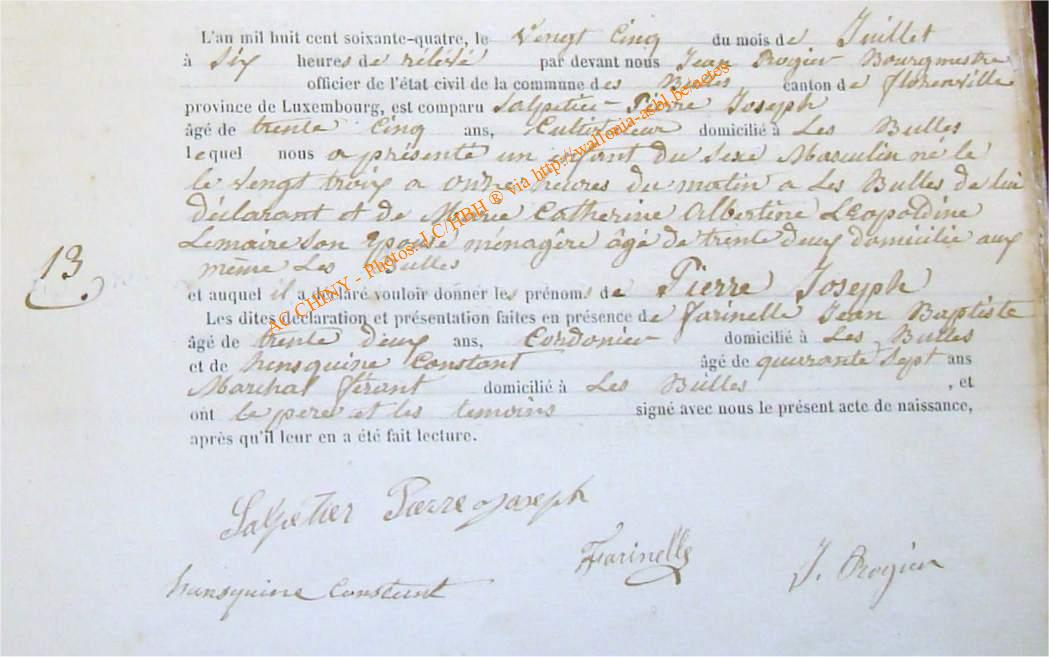 L'an mil huit cent soixante-quatre, le vingt Cinq du mois de Juillet
à Six heures de rélévé par devant nous Jean Rogier Bourgmestre
officier de l'état civil de la commune des Bulles canton de florenville
province de Luxembourg, est comparu Salpetier Pierre Joseph
âgé de trente Cinq ans, Cultivateur domicilié à Les Bulles
lequel nous a présenté un enfant du Sexe Masculin né le
le vingt trois a onze heures du matin a Les Bulles de lui
déclarant et de Marie Catherine Albertine Léopoldine
Lemaire Son Epouse ménagère âgé de trente deux domicilié aux
même Les Bulles
13.
et auquel il a déclaré vouloir donner les prénoms de Pierre Joseph
Les dites déclaration et présentation faites en présence de farinelle Jean Baptiste
âgé de trente deux ans, Cordonier domicilié à Les Bulles
et de hansquine Constant âgé de quarante Sept ans
Marchal férant domicilié à Les Bulles , et
ont le pere et les temoins signé avec nous le présent acte de naissance,
après qu'il leur en a été fait lecture.
Salpetier Pierre joseph
Farinelle
J. Rogier
hansquine Constant
AC CHINY - Photos: LC/HBH ® via http://wallonia-asbl.be/actes